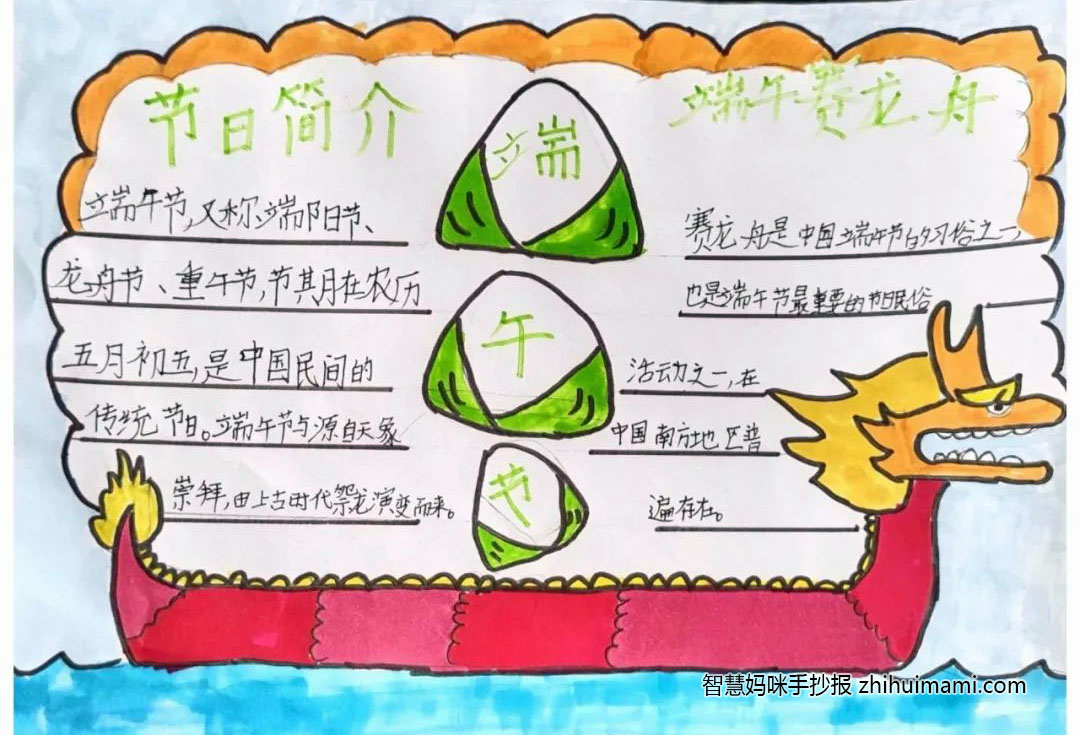 节日简介
端午节,又称端阳节、
龙舟节、重午节,节其月在农历
五月初五,是中国民间的
传统节日。端午节与源自天象
崇拜,由上古时代祭龙演变而来。
端
午
节
端午赛龙舟
赛龙舟是中国端午节的习俗之一,
也是端午节最重要的节日民俗
活动之一,在
中国南方地区普
遍存在。
智慧妈咪手抄报 zhihuimami.com